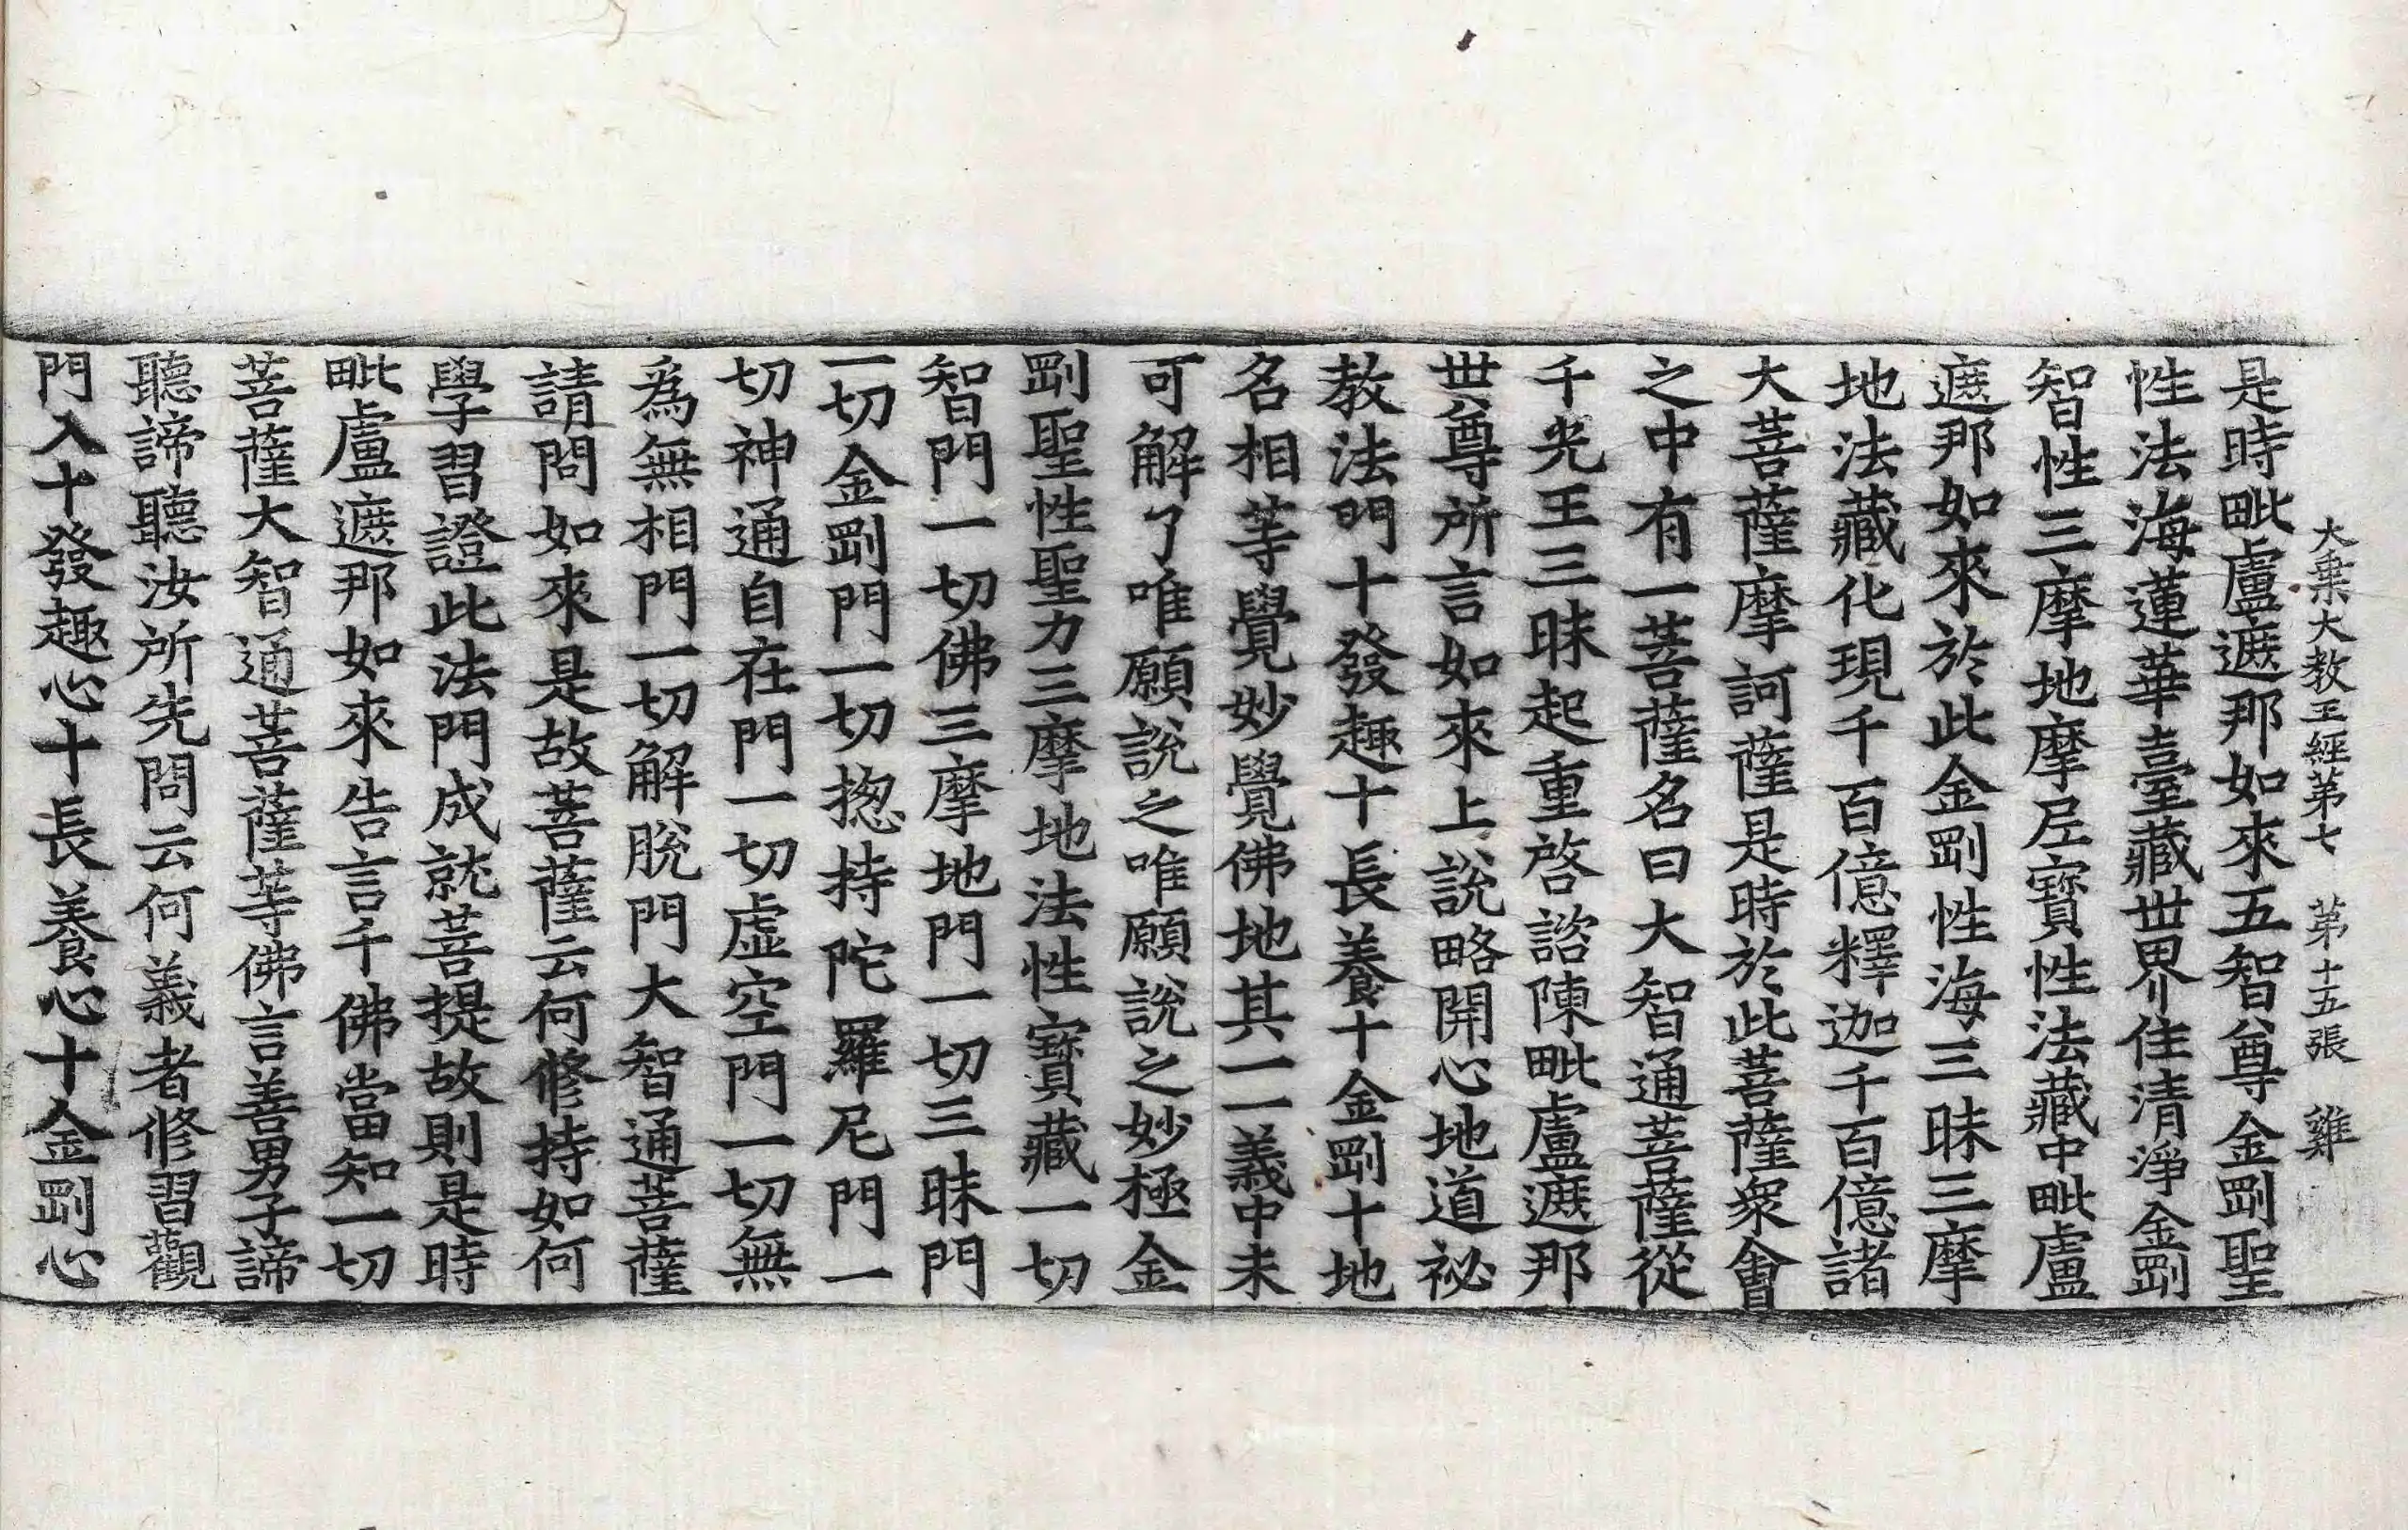 大乗大教王經第七 第十五張 雞
是時毗盧遮那如來五智尊金剛聖
性法海蓮華臺藏世界住清淨金剛
智性三摩地摩尼寶性法藏中毗盧
遮那如來於此金剛性海三昧三摩
地法藏化現千百億釋迦千百億諸
大菩薩摩訶薩是時於此菩薩衆會
之中有一菩薩名曰大智通菩薩從
千光王三昧起重啓諮陳毗盧遮那
世尊所言如來上說略開心地道祕
教法門十發趣十長養十金剛十地
名相等覺妙覺佛地其一一義中未
可解了唯願說之唯願說之妙極金
剛聖性聖力三摩地法性寶藏一切
智門一切佛三摩地門一切三昧門
一切金剛門一切揔持陀羅尼門一
切神通自在門一切虛空門一切無
爲無相門一切解脫門大智通菩薩
請問如來是故菩薩云何修持如何
學習證此法門成就菩提故則是時
毗盧遮那如來告言千佛當知一切
菩薩大智通菩薩等佛言善男子諦
聽諦聽汝所先問云何義者修習觀
門入十發趣心十長養心十金剛心